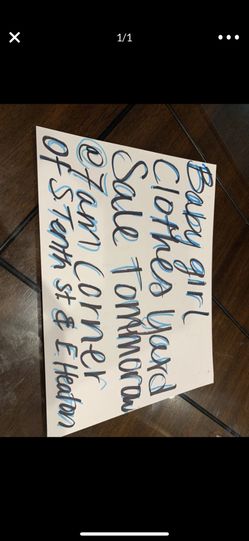 1/1
Baby girl
Clothes Yard
Sale Tommorow
@ 7am Corner
Of S Tenth st & E. Heaton